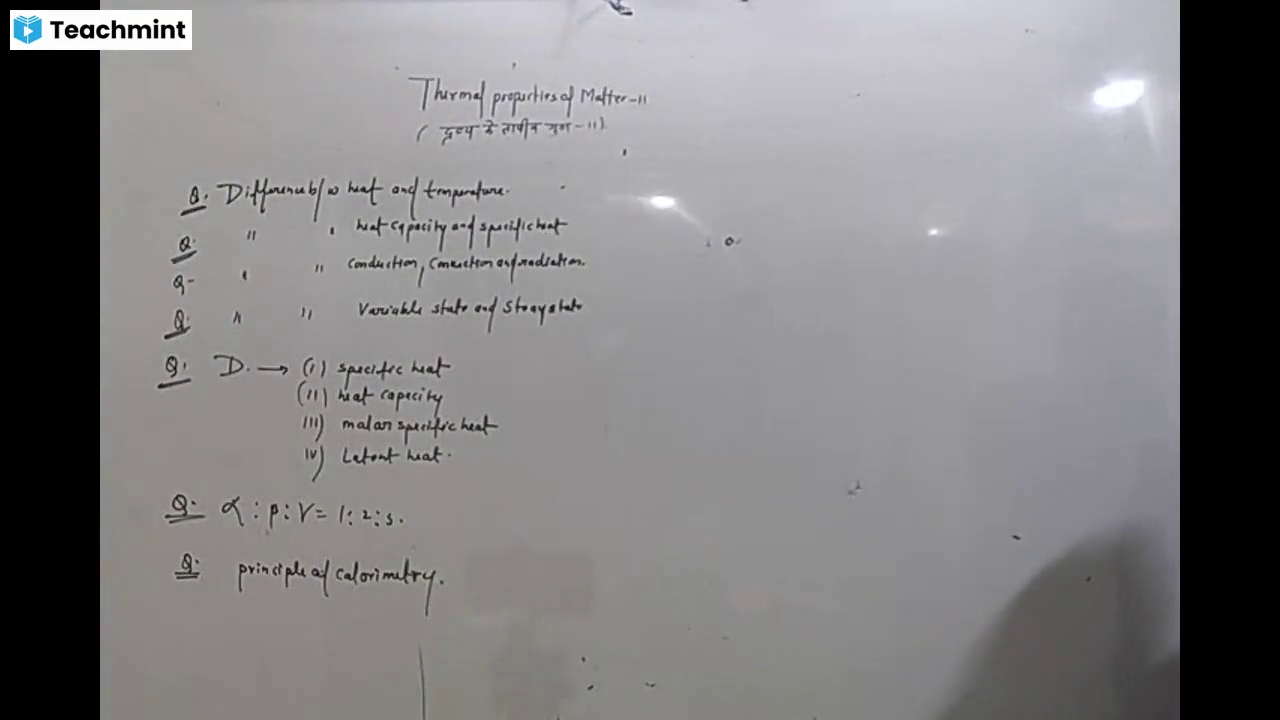 Teachmint
Thermal properties of Matter-II
(द्रव्य के तापीय गुण-II)
Q. Difference b/w heat and temperature.
Q. " " heat capacity and specific heat
Q- " " Conduction, Convection and radiation.
Q. " " Variable state and Steay state
Q. D. → (i) specific heat
(ii) heat capecity
iii) molar specific heat
iv) Latent heat.
Q. α : β : γ = 1 : 2 : 3.
Q. principle of calorimetry.